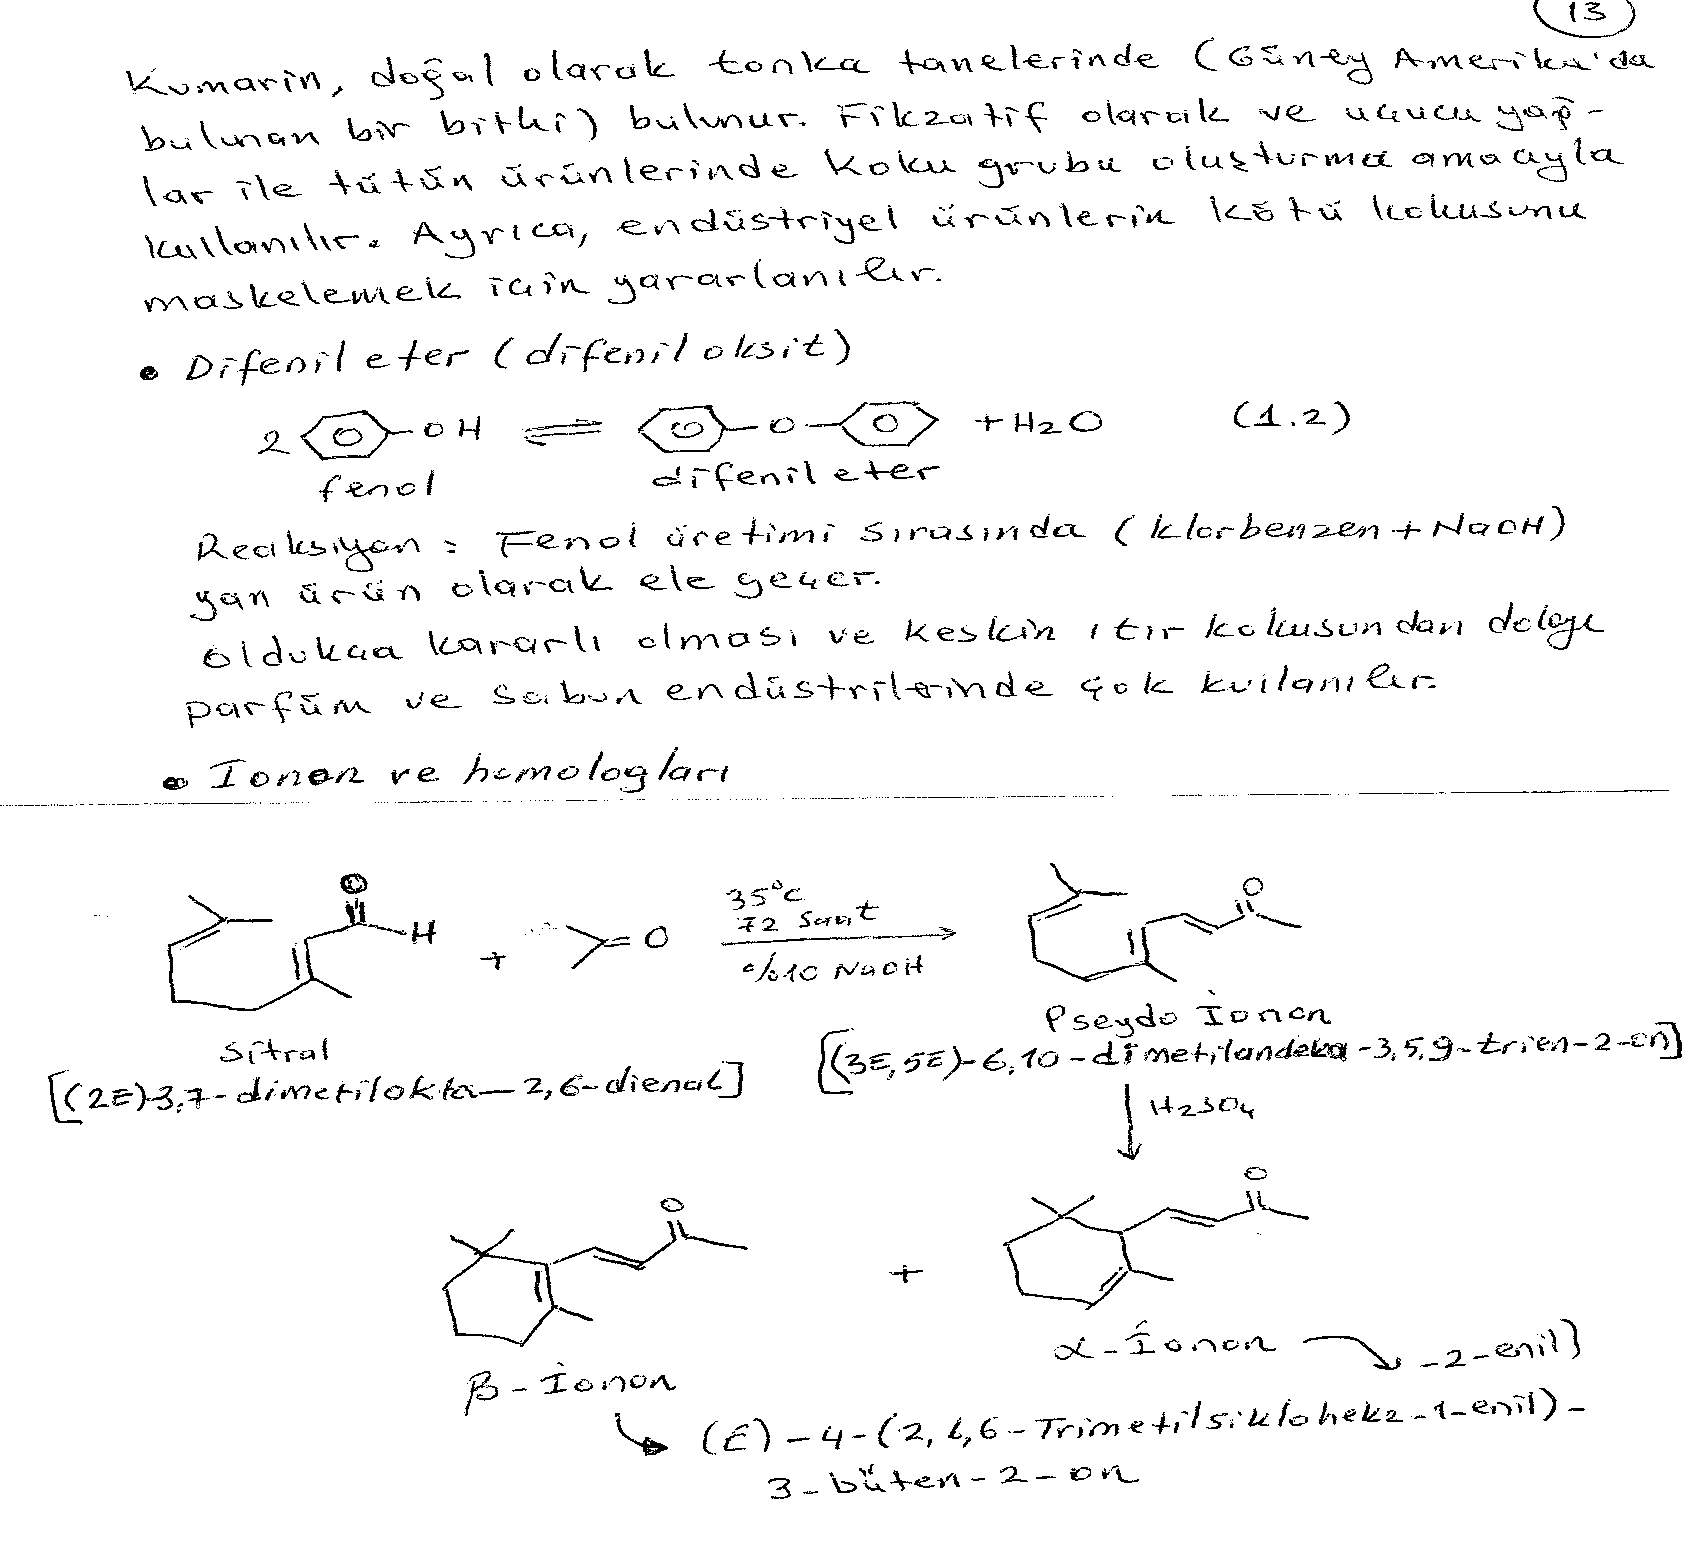 13
Kumarin, doğal olarak tonka tanelerinde (Güney Amerika'da
bulunan bir bitki) bulunur. Fikzatif olarak ve uçucu yapı-
lar ile tütün ürünlerinde koku grubu oluşturma amacıyla
kullanılır. Ayrıca, endüstriyel ürünlerin kötü kokusunu
maskelemek için yararlanılır.
• Difenil eter (difenil oksit)
2 -OH ⇌ -O- +H2O (1.2)
fenol difenil eter
Reaksiyon: Fenol üretimi sırasında (klorbenzen + NaOH)
yan ürün olarak ele geçer.
Oldukça kararlı olması ve keskin ıtır kokusundan dolayı
parfüm ve sabun endüstrilerinde çok kullanılır.
• Ionon ve homologları
O H + O 35°C 72 saat %10 NaOH O
Sitral
Pseydo İonon
[(2E)-3,7-dimetilokta-2,6-dienal]
[(3E,5E)-6,10-dimetilandeka-3,5,9-trien-2-on]
H2SO4
O + O
β-İonon
α-İonon -2-enil]
(E)-4-(2,6,6-Trimetilsikloheks-1-enil)-
3-büten-2-on